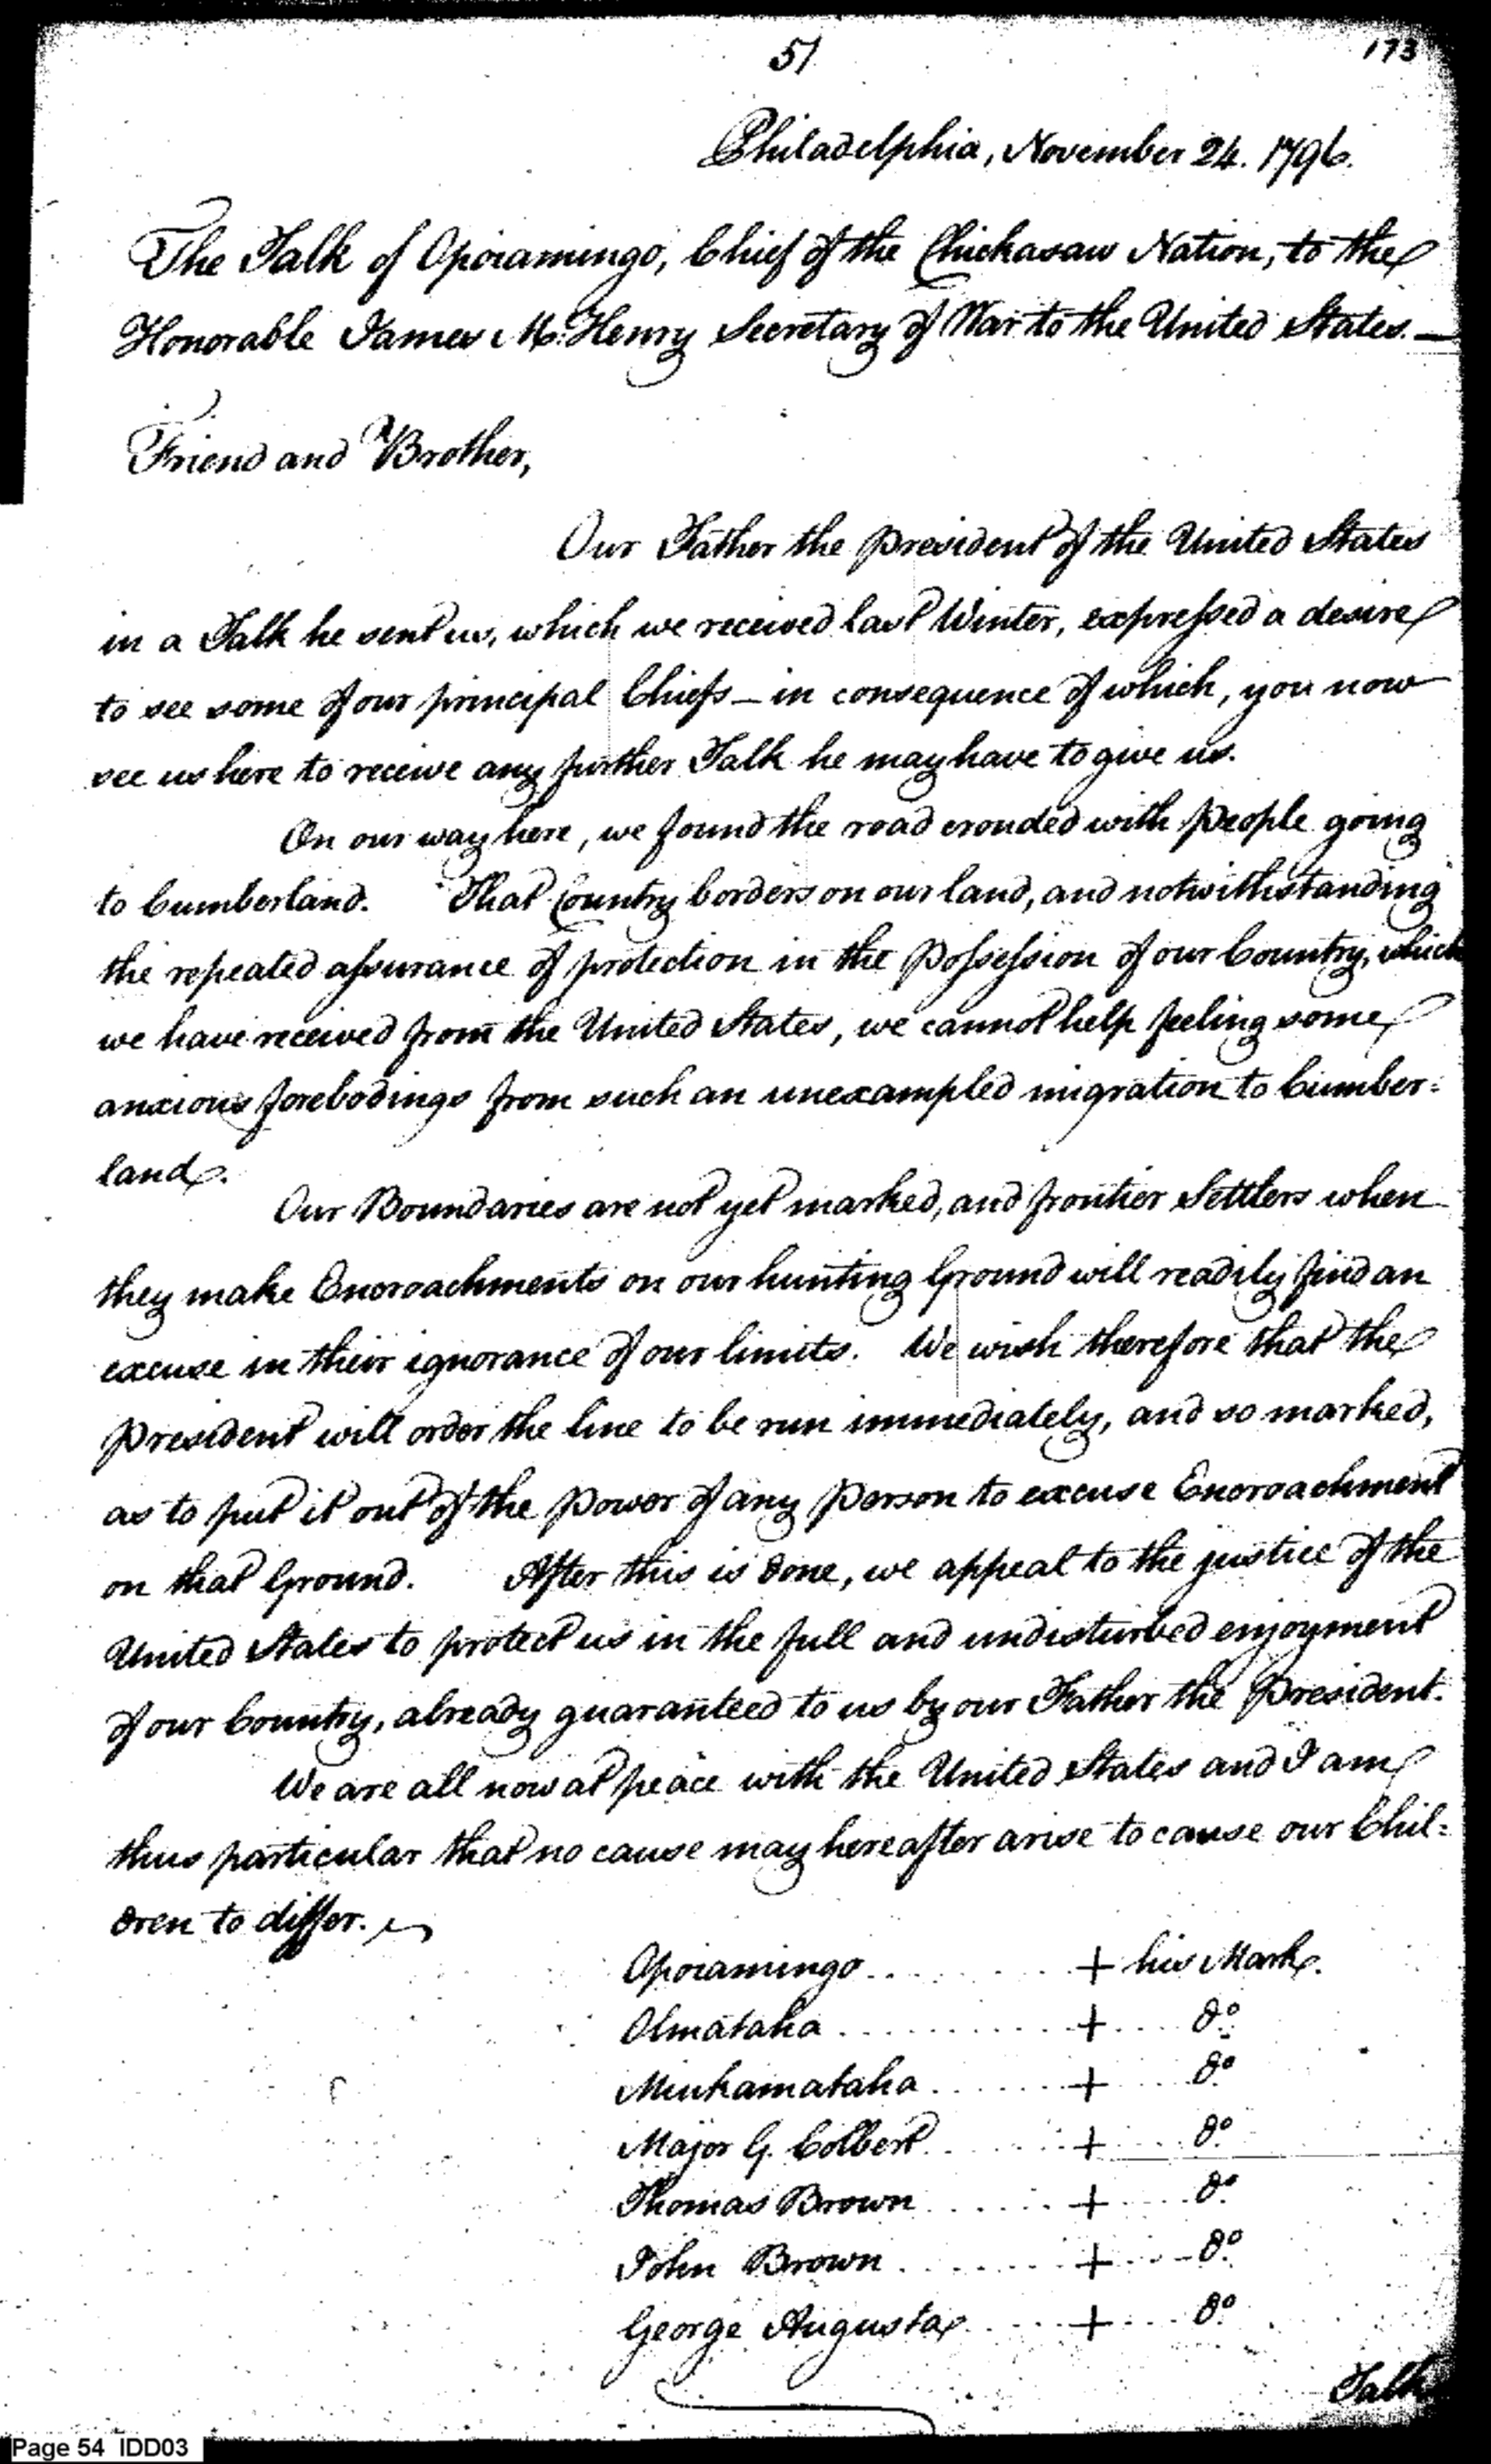 51
173
Philadelphia, November 24. 1796.
The Talk of Opoiamingo, Chief of the Chickasaw Nation, to the
Honorable James Mc.Henry Secretary of War to the United States. —
Friend and Brother,
Our Father the President of the United States
in a Talk he sent us, which we received last Winter, expressed a desire
to see some of our principal Chiefs — in consequence of which, you now
see us here to receive any further Talk he may have to give us.
On our way here, we found the road crouded with people going
to Cumberland. That Country borders on our land, and notwithstanding
the repeated assurance of protection in the Possession of our Country, which
we have received from the United States, we cannot help feeling some
anxious forebodings from such an unexampled migration to Cumber=
land.
Our Boundaries are not yet marked, and frontier Settlers when
they make Encroachments on our hunting Ground will readily find an
excuse in their ignorance of our limits. We wish therefore that the
President will order the line to be run immediately, and so marked,
as to put it out of the Power of any Person to excuse Encroachment
on that Ground. After this is done, we appeal to the justice of the
United States to protect us in the full and undisturbed enjoyment
of our Country, already guaranteed to us by our Father the President.
We are all now at peace with the United States and I am
thus particular that no cause may hereafter arise to cause our Chil=
dren to differ.
Opoiamingo . . . . . . + his Mark.
Olmataha . . . . . . + . . . . do.
Minkamataha . . . . . . + . . . . do.
Major G. Colbert . . . . . . + . . . . do.
Thomas Brown . . . . . . + . . . . do.
John Brown . . . . . . + . . . . do.
George Augusta . . . . . . + . . . . do.
Talk
Page 54 IDD03